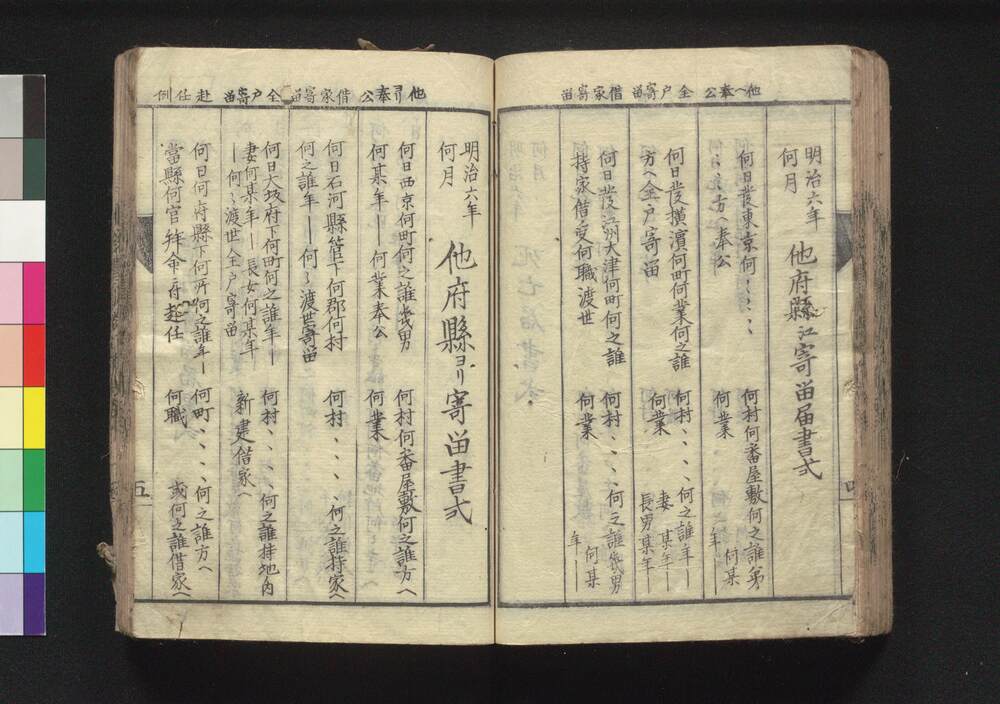 他ヘ奉公 全戸寄畄 借家寄畄
明治六年
何月
他府縣江寄畄届書式
何日発東京何〻〻〻
何〻〻方ヘ奉公
何村何番屋敷何之誰弟
何業 何某
年―
何日発横濱何町何業何之誰
方ヘ全戸寄畄
何村、、、、何之誰年―
何業 妻某年―
長男某年―
何日発江洲大津何町何之誰
持家借受何職渡世
何村、、、、何之誰幾男
何業 何某
年―
四
他ヨリ奉公 借家寄畄 全戸寄畄 赴任例
明治六年
何月
他府縣ヨリ寄畄書式
何日西京何町何之誰幾男
何某年― 何業奉公
何村何番屋敷何之誰方ヘ
何業
何日石河縣管下何郡何村
何之誰年― 何〻渡世寄畄
何村、、、、何之誰持家ヘ
何日大坂府下何町何之誰年―
妻何某年― 長女何某年―
―何〻渡世全戸寄畄
何村、、、、何之誰持地内
新建借家ヘ
何日何府縣下何所何之誰年―
當縣何官拜命ニ付赴任
何町、、、、何之誰方ヘ
何職 或何之誰借家ヘ
五